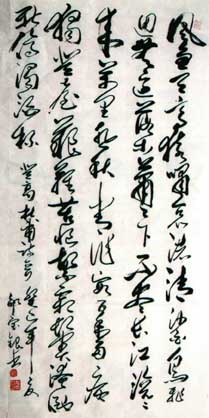 風急天高猿嘯哀渚清沙白鳥飛
迴無邊落木蕭蕭下不盡長江滾滾
來萬里悲秋常作客百年多病
獨登臺艱難苦恨繁霜鬢潦倒
新停濁酒杯 登高杜甫詩 年夏